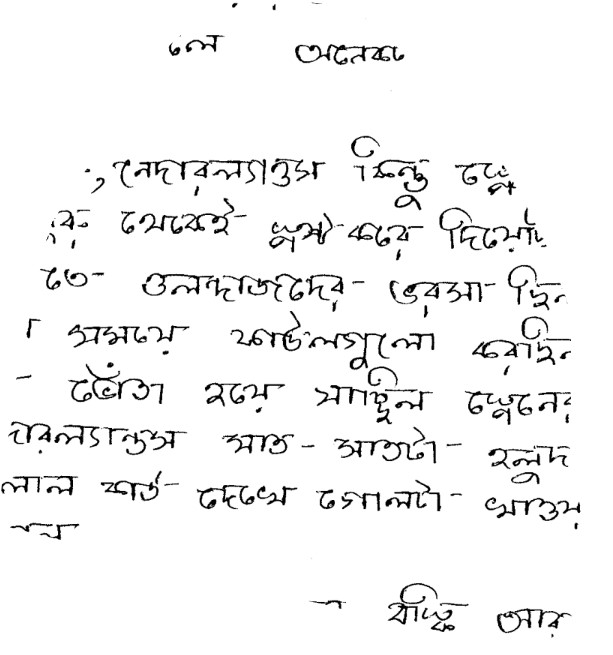 লে অনেকটে
নেদারল্যান্ডস কিন্তু স্পে
থেকেই স্পষ্ট করে দিয়েছি
তে ওলন্দাজদের ভরসা ছিল
া সময়ে ফাউলগুলো করছিল
- ভোঁতা হয়ে যাচ্ছিল স্পেনের
দারল্যান্ডস সাত-সাতটা হলুদ
লাল কার্ড দেখে গোলটা খাওয়
- আর